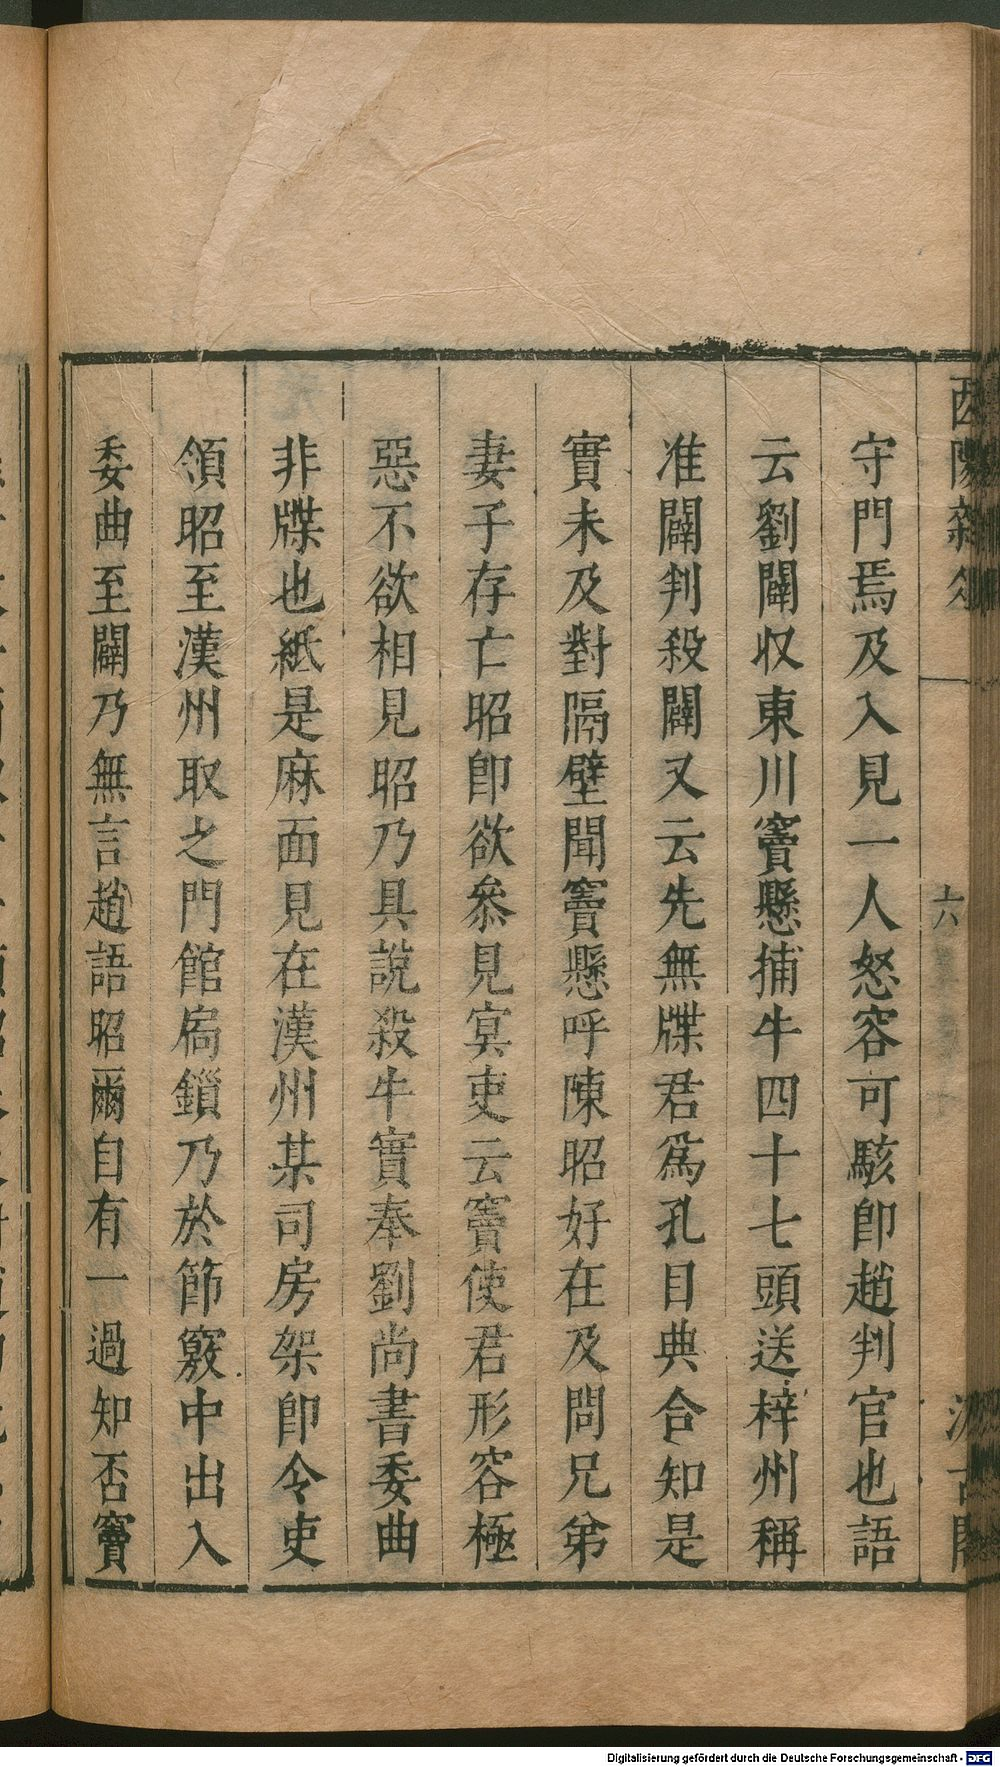 酉陽雜俎
六
汲古閣
守門焉及入見一人怒容可駭卽趙判官也語
云劉闢収東川竇懸捕牛四十七頭送梓州稱
准闢判殺闢又云先無牒君爲孔目典合知是
實未及對隔壁聞竇懸呼陳昭好在及問兄弟
妻子存亡昭卽欲叅見冥吏云竇使君形容極
惡不欲相見昭乃具說殺牛實奉劉尚書委曲
非牒也紙是麻面見在漢州某司房架卽令吏
領昭至漢州取之門館扃鎖乃於節竅中出入
委曲至闢乃無言趙語昭爾自有一過知否竇
Digitalisierung gefördert durch die Deutsche Forschungsgemeinschaft - DFG